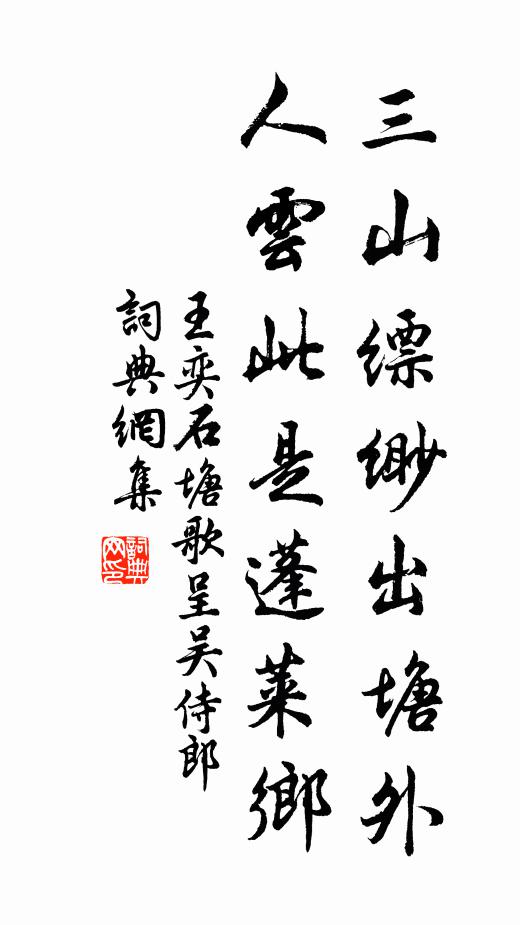 三山縹緲出塘外
人雲此是蓬萊鄉
王奕石塘歌呈吴侍郎
詞典網集
詞典网印